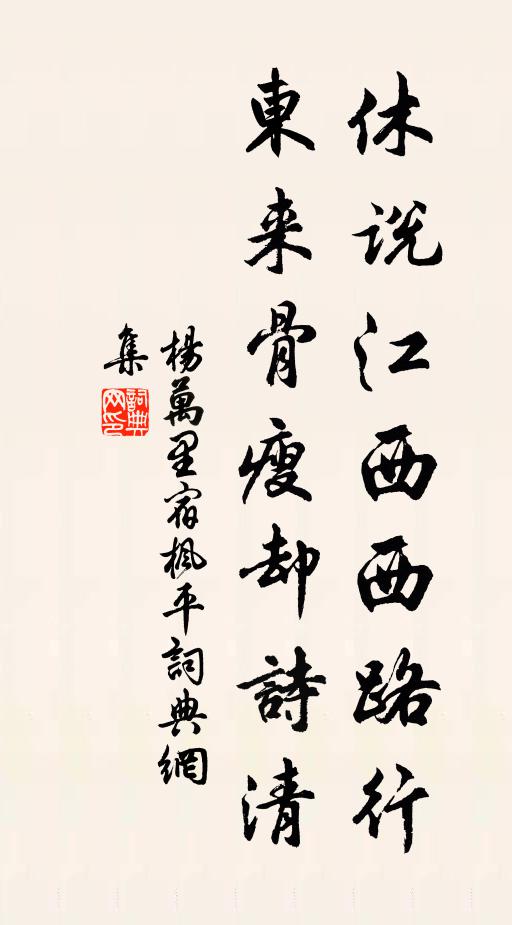 休説江西西路行
東来骨瘦却詩清
楊萬里宿楓平詞典網
集
詞典網印